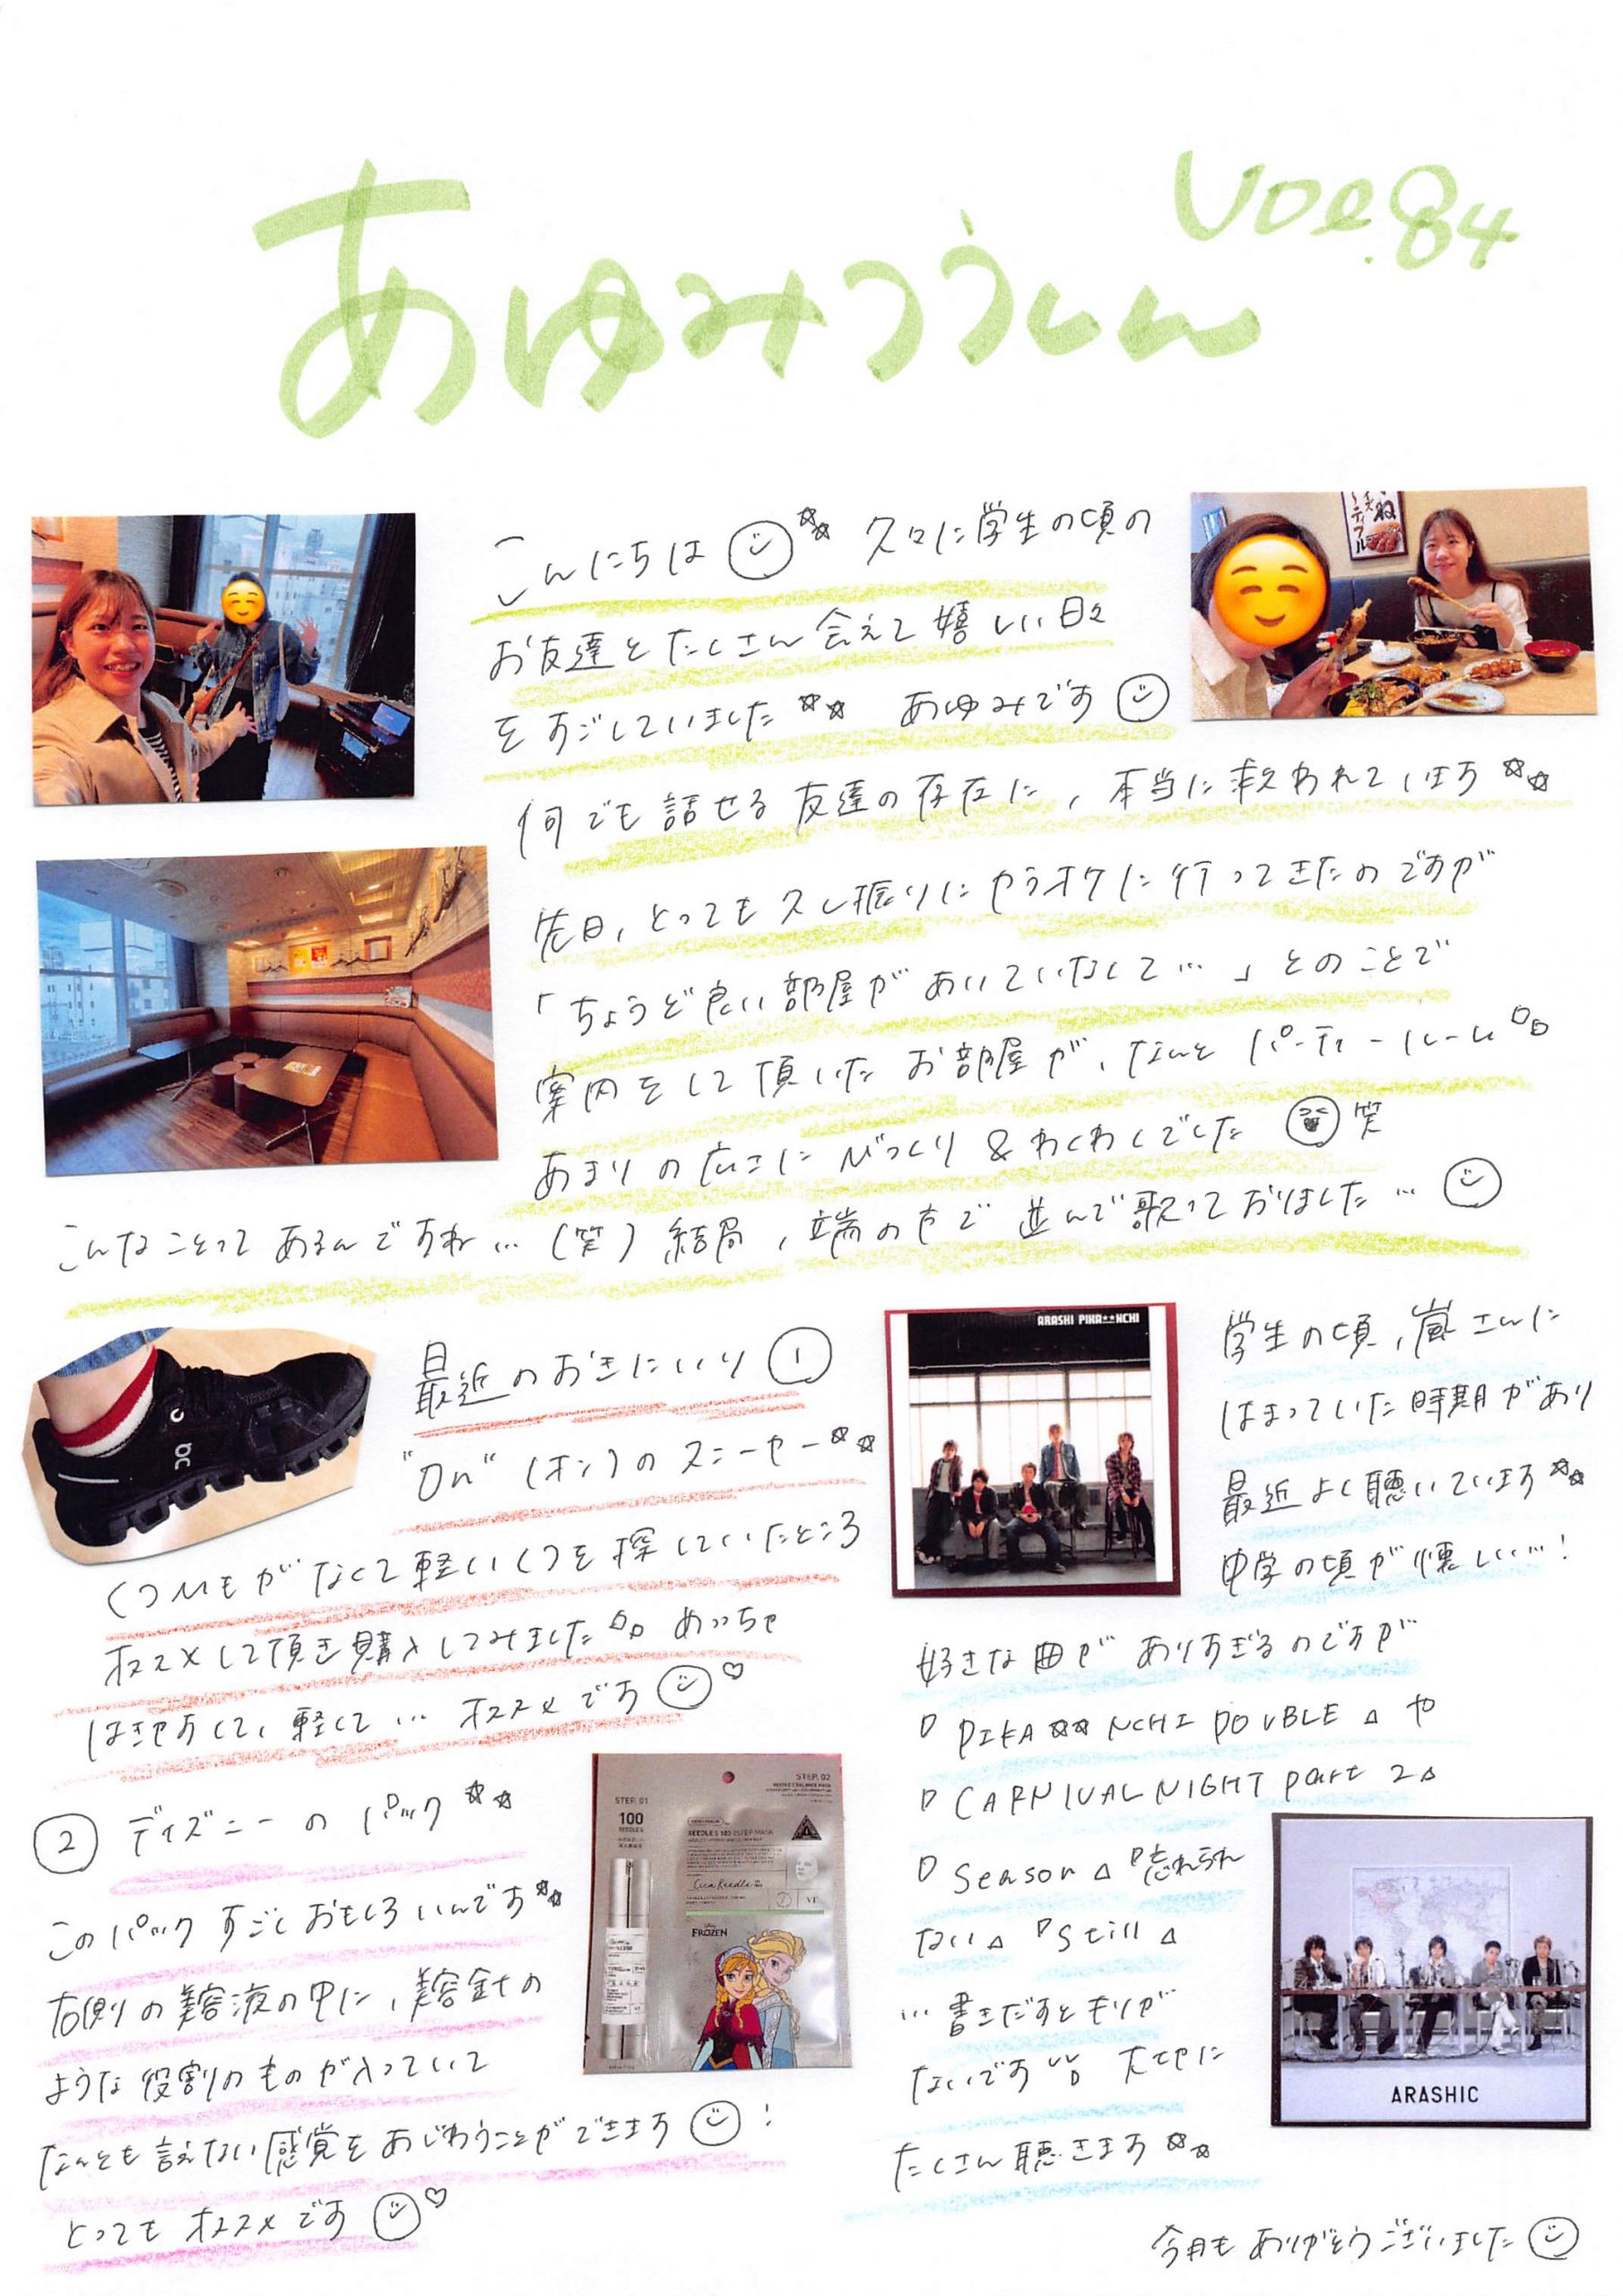 あゆみつうしん
vol.84
こんにちは 久々に学生の頃の
お友達とたくさん会えて嬉しい日々
をすごしていました☆☆ あゆみです
何でも話せる友達の存在に、本当に救われています☆☆
先日、とっても久し振りにカラオケに行ってきたのですが
「ちょうど良い部屋があいていなくて…」とのことで
案内をして頂いたお部屋が、なんとパーティールーム
あまりの広さにびっくり&わくわくでした 笑
こんなことってあるんですね…(笑)結局、端の方で並んで歌っておりました…
最近のおきにいり①
"On"(オン)のスニーカー☆☆
くつひもがなくて軽いくつを探していたところ
オススメして頂き購入してみました。めっちゃ
はきやすくて、軽くて… オススメです♡
②ディズニーのパック☆☆
このパックすごくおもしろいんです☆☆
右側の美容液の中に、美容針の
ような役割のものが入っていて
なんとも言えない感覚をあじわうことができます!
とってもオススメです♡
STEP. 01
100
NEEDLES
STEP. 02
REEDLE S 100 2STEP MASK
Cica Reedle
VT
Disney
FROZEN
On
ARASHI PIKA★★NCHI
学生の頃、嵐さんに
はまっていた時期があり
最近よく聴いています☆☆
中学の頃が懐しい…!
好きな曲がありすぎるのですが
『PIKA☆☆NCHI DOUBLE』や
『CARNIVAL NIGHT part 2』
『Season』『忘れられ
ない』『Still』
…書きだすときりが
ないです 大切に
たくさん聴きます☆☆
ARASHIC
今月もありがとうございました